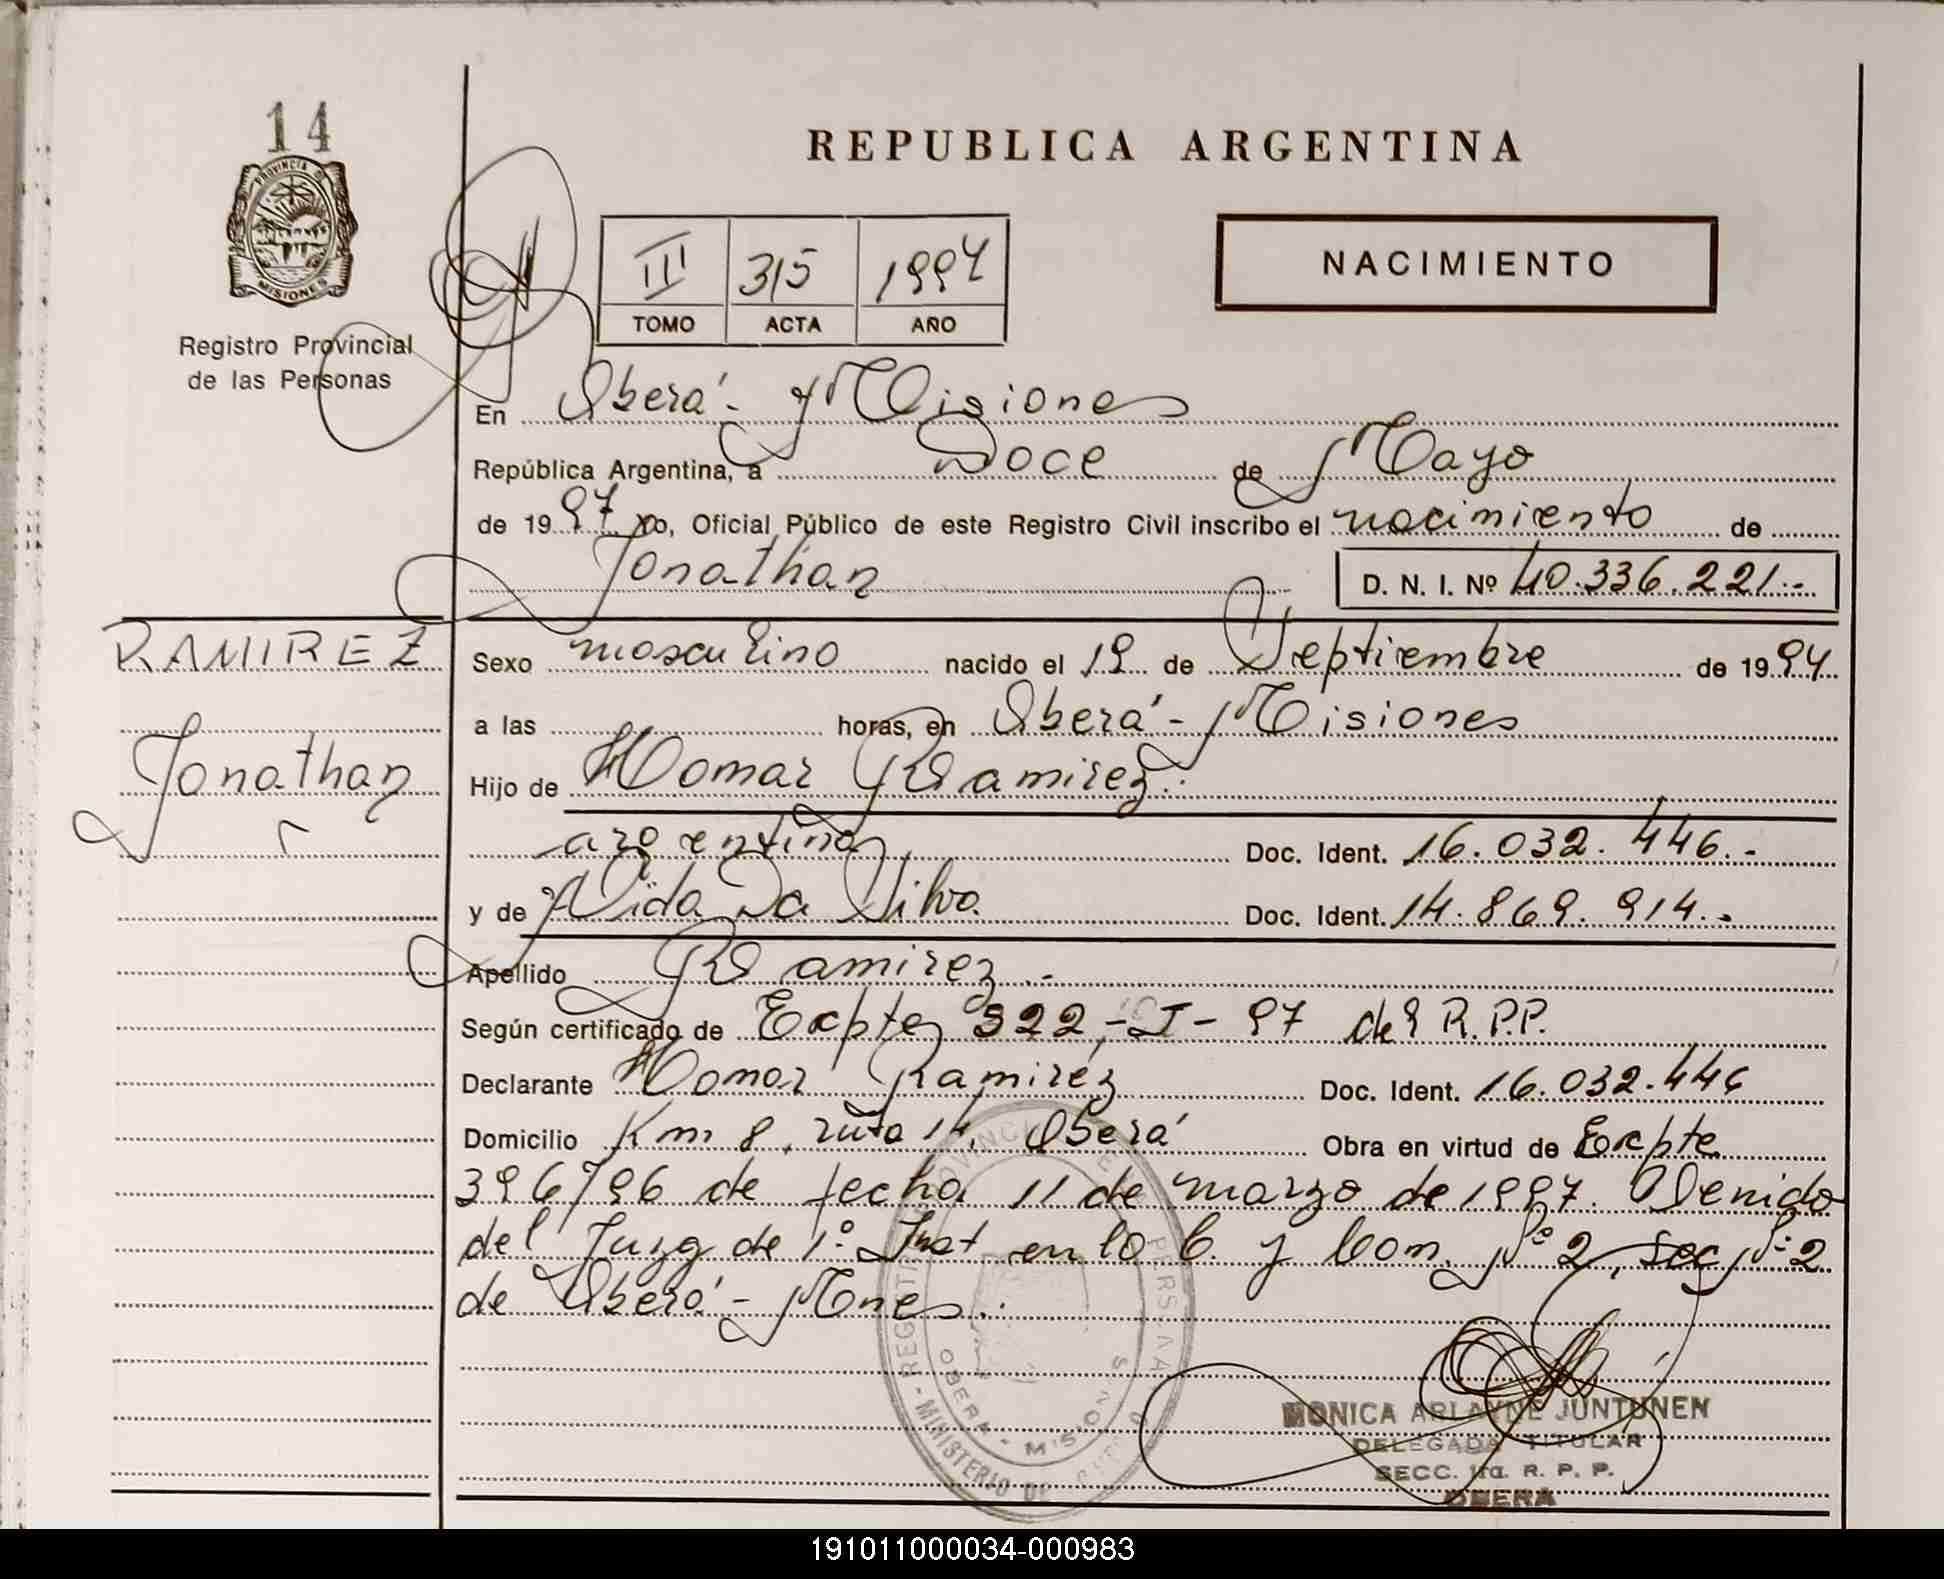 14
PROVINCIA DE
MISIONES
Registro Provincial
de las Personas
REPUBLICA ARGENTINA
III 315 1994
TOMO ACTA AÑO
NACIMIENTO
En Oberá - Misiones
República Argentina, a Doce de Mayo
de 19 97 Yo, Oficial Público de este Registro Civil inscribo el nacimiento de
Jonathan D. N. I. Nº 40.336.221.-
RAMIREZ
Jonathan
Sexo masculino nacido el 19 de Septiembre de 19 94
a las horas, en Oberá - Misiones
Hijo de Homar Ramirez.
argentino Doc. Ident. 16.032.446.-
y de Aida Da Silva. Doc. Ident. 14.869.914.-
Apellido Ramirez.-
Según certificado de Expte 322-I-97 del R.P.P.
Declarante Homar Ramirez Doc. Ident. 16.032.446
Domicilio Km 8, ruta 14, Oberá Obra en virtud de Expte
396/96 de fecha 11 de marzo de 1997. Venido
del Juzg de 1º Inst en lo C. y Com. Nº 2, sec Nº 2
de Oberá - Mnes.
MONICA ARLAYNE JUNTUNEN
DELEGADA TITULAR
SECC. 1ra. R. P. P.
OBERA
OBERA - MISIONES
191011000034-000983